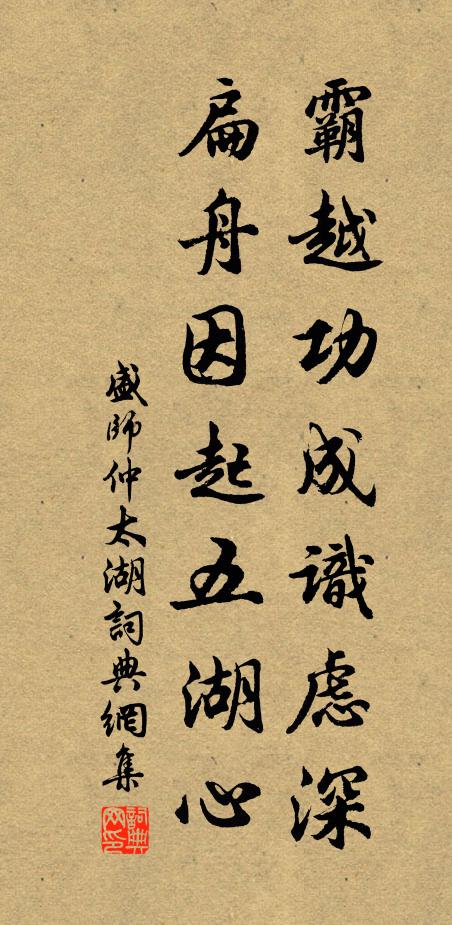 霸越功成識慮深
扁舟因起五湖心
盛師仲太湖詞典網集
詞典网印